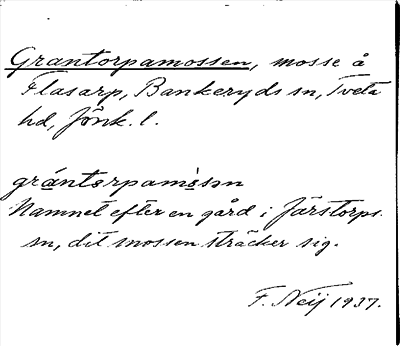 Grantorpamossen, mosse å
Flasarp, Bankeryds sn, Tveta
hd, Jönk. l.
grántorpamòsən
Namnet efter en gård i Järstorps
sn, dit mossen sträcker sig.
F. Neij 1937.